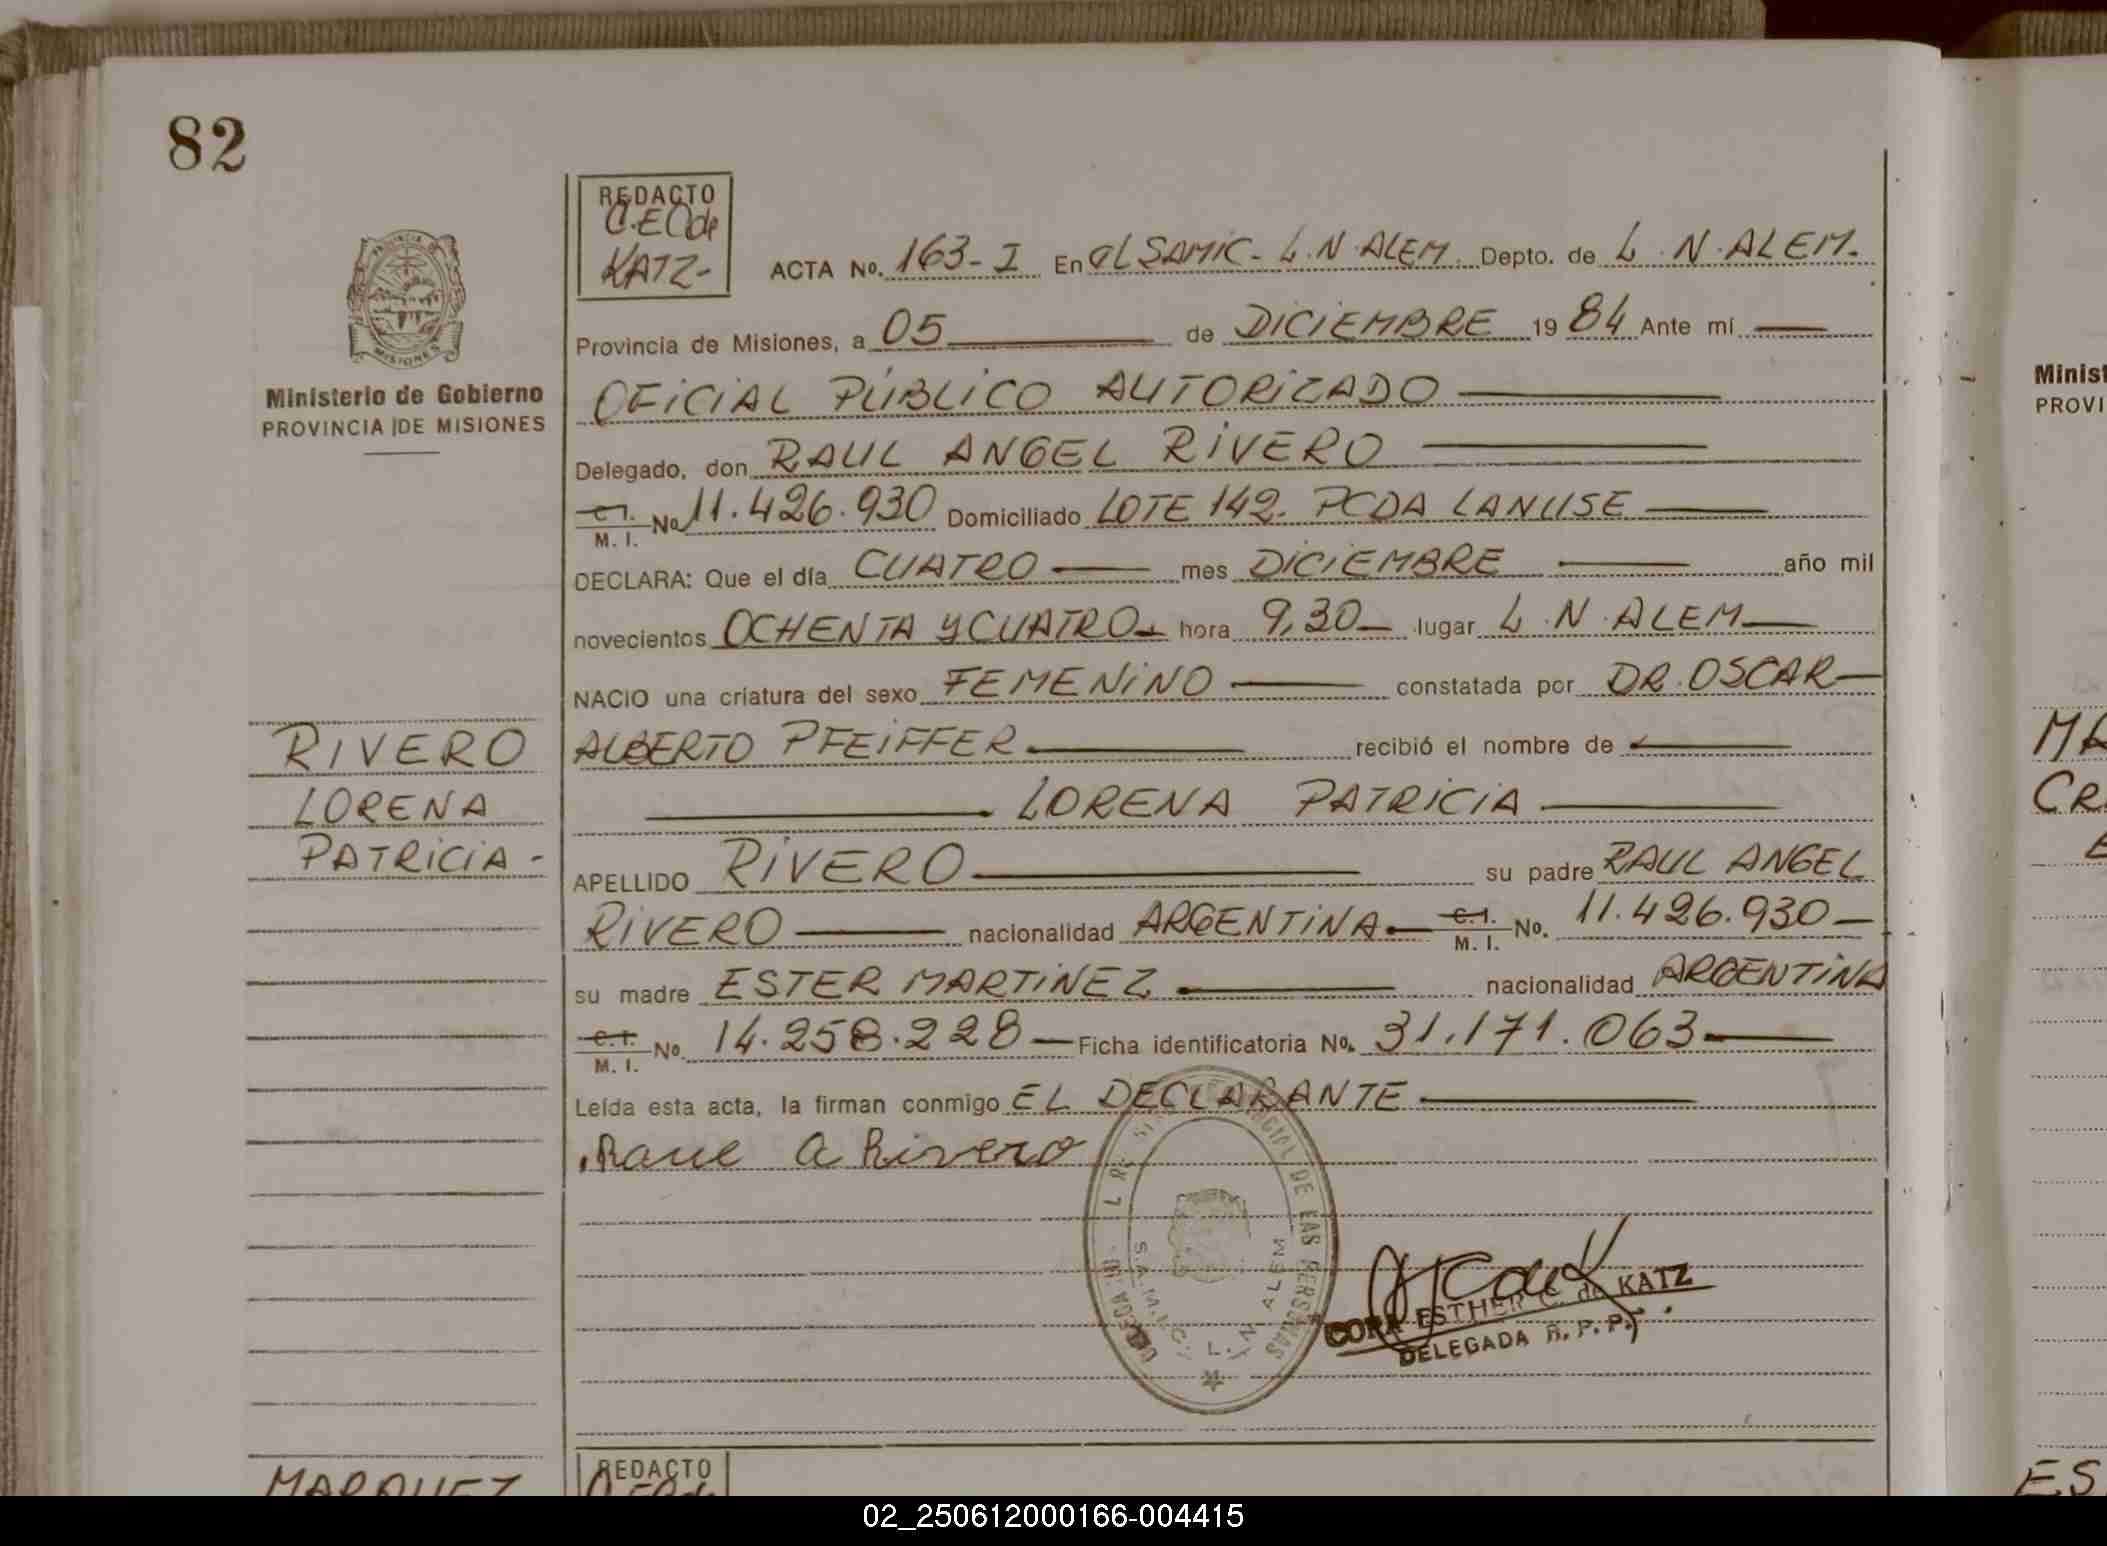 82
REDACTO
C.E.C de
KATZ-
ACTA No. 163-I En el SAMIC- L.N.ALEM. Depto. de L.N.ALEM.
Provincia de Misiones, a 05 de DICIEMBRE 1984 Ante mí
Ministerio de Gobierno
PROVINCIA DE MISIONES
OFICIAL PÚBLICO AUTORIZADO
Delegado, don RAUL ANGEL RIVERO
C.I. M.I. No 11.426.930 Domiciliado LOTE 142. PCDA LANUSE
DECLARA: Que el día CUATRO mes DICIEMBRE año mil
novecientos OCHENTA Y CUATRO hora 9,30 lugar L.N.ALEM
NACIO una criatura del sexo FEMENINO constatada por DR. OSCAR
ALBERTO PFEIFFER recibió el nombre de
LORENA PATRICIA
RIVERO
LORENA
PATRICIA-
APELLIDO RIVERO su padre RAUL ANGEL
RIVERO nacionalidad ARGENTINA C.I. M.I. No. 11.426.930
su madre ESTER MARTINEZ nacionalidad ARGENTINA
C.I. M.I. No. 14.258.228 Ficha identificatoria No. 31.171.063
Leída esta acta, la firman conmigo EL DECLARANTE
Raul A Rivero
DE LAS PERSONAS
S.A.M.I.C. L.N. ALEM
CORA ESTHER C. de KATZ
DELEGADA R.P.P.
MARQUEZ
REDACTO
Minist
PROVI
MA
CR
ES
02_250612000166-004415